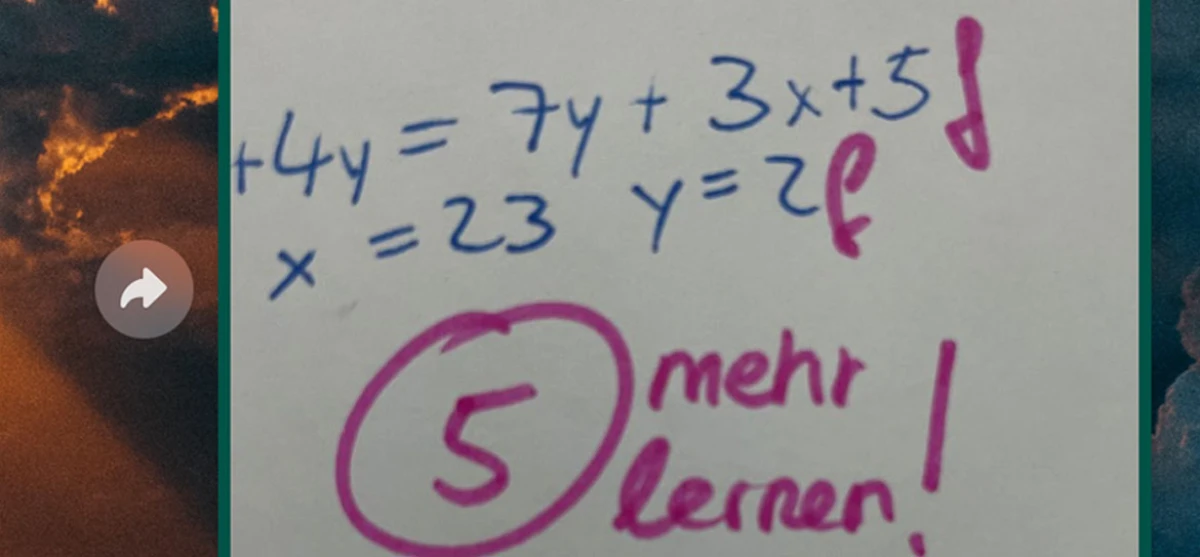 +4y = 7y + 3x+5 f
x = 23 y = 2 f
5 mehr
lernen!